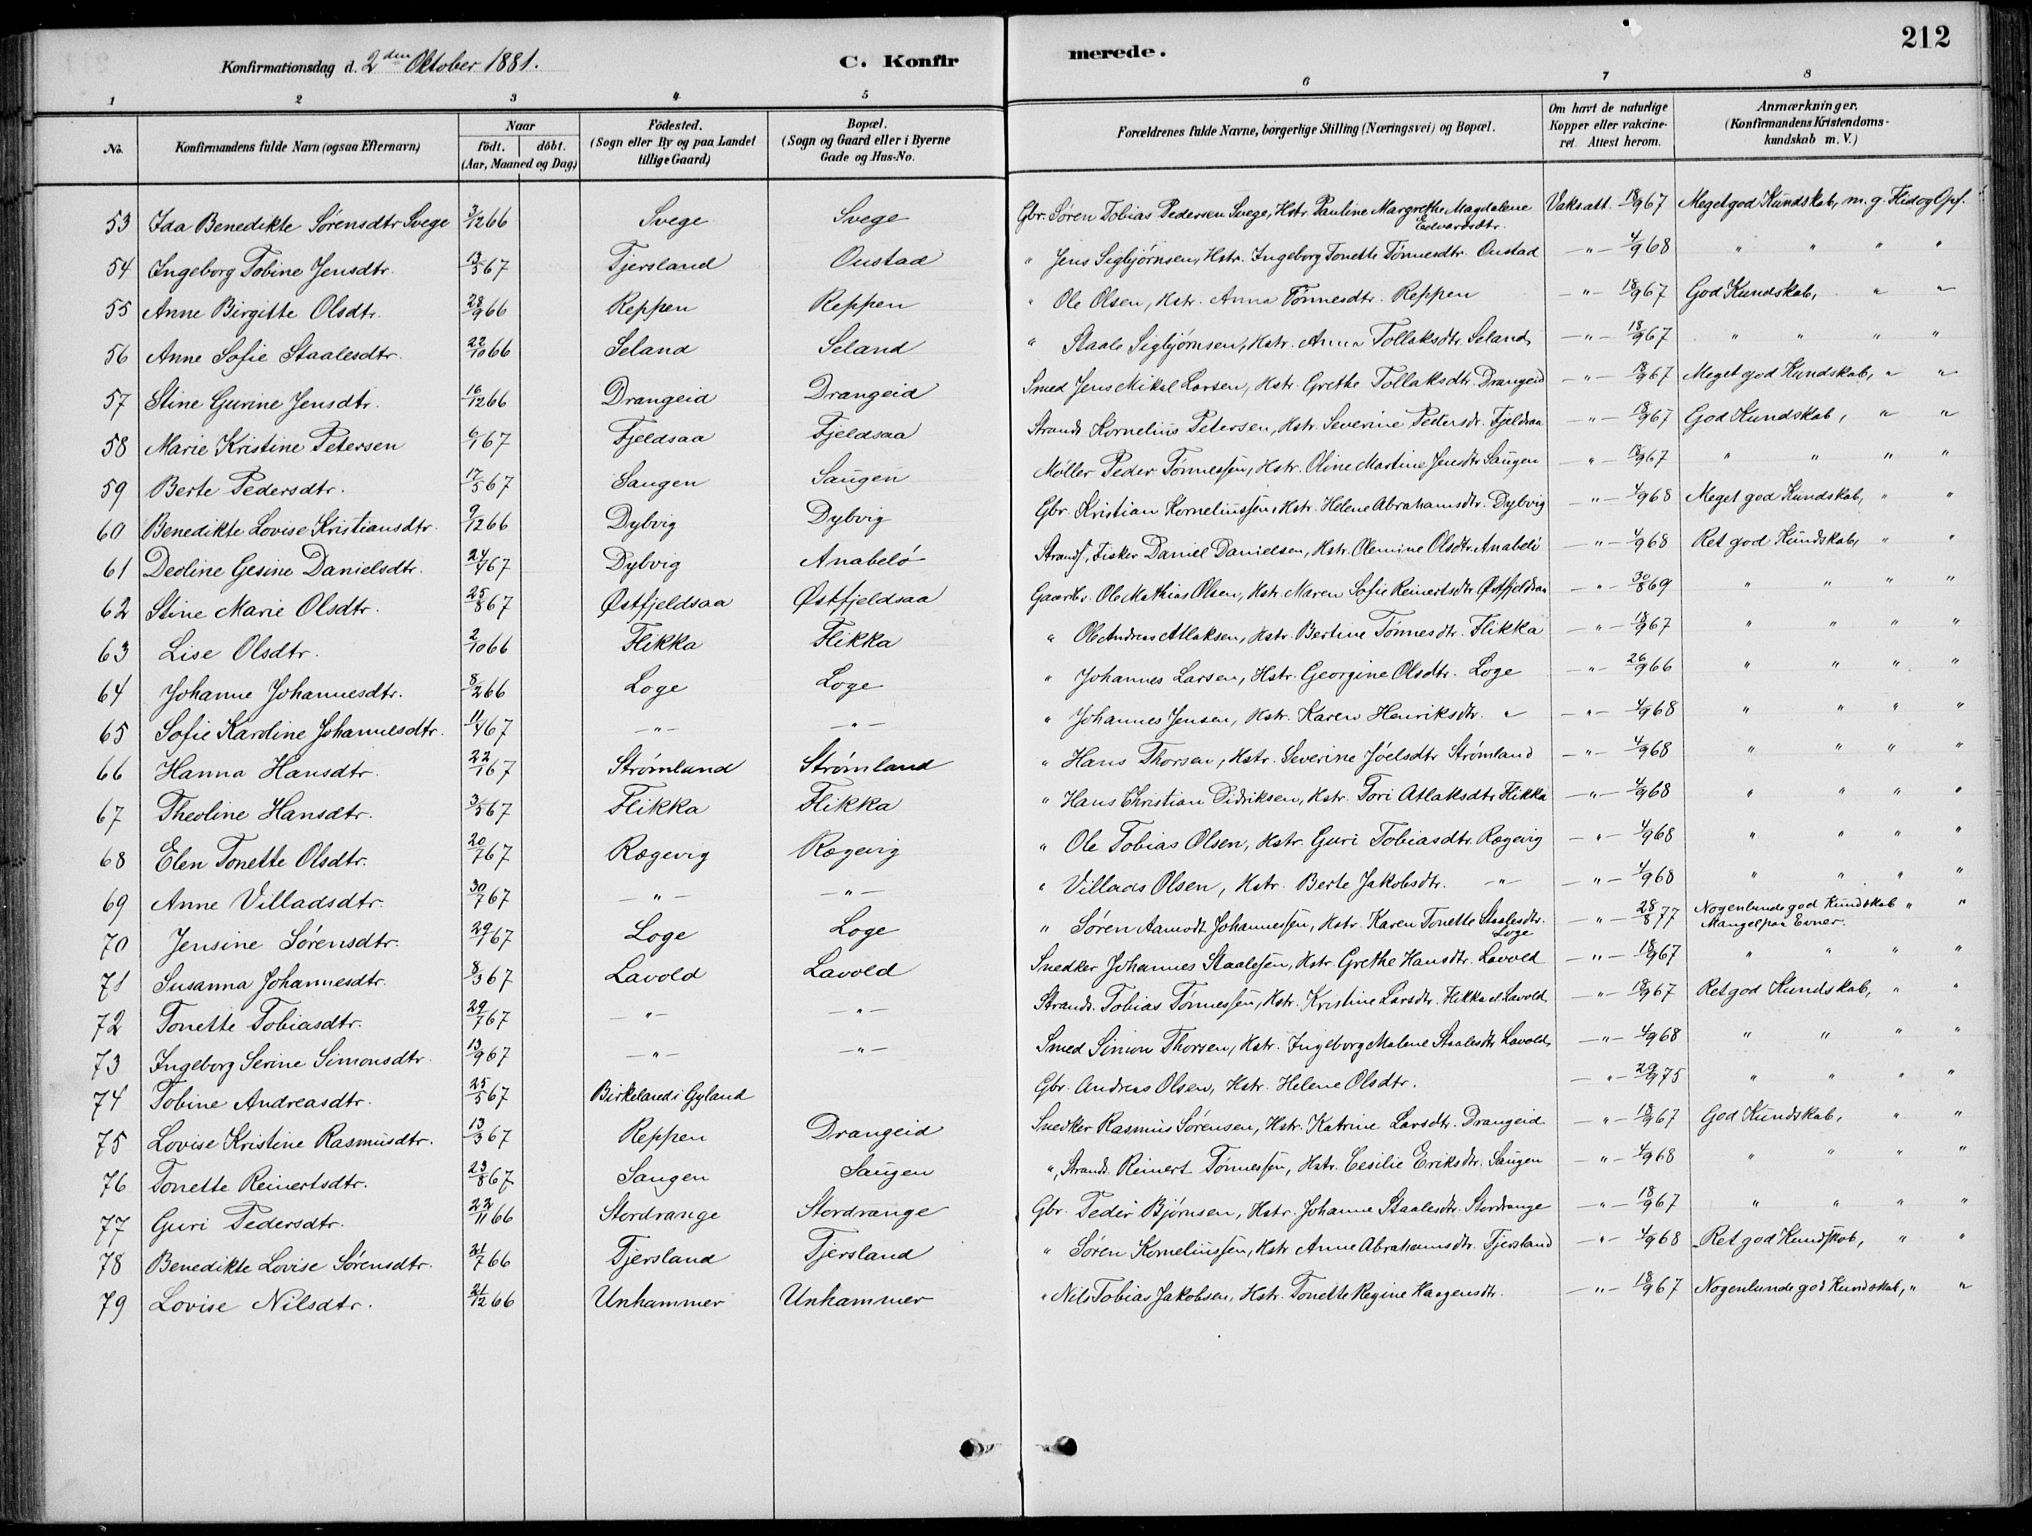 Konfirmationsdag d. 2den Oktober 1881. C. Konfirmerede. 212
1 2 3 4 5 6 7 8
No. Konfirmandens fulde Navn (ogsaa Efternavn) Naar født. døbt. (Aar, Maaned og Dag) Fødested. (Sogn eller By og paa Landet tillige Gaard) Bopæl. (Sogn og Gaard eller i Byerne Gade og Hus-No. Forældrenes fulde Navne, borgerlige Stilling (Næringsvei) og Bopæl. Om havt de naturlige Kopper eller vakcineret. Attest herom. Anmærkninger. (Konfirmandens Kristendomskundskab m. V.)
53 Ida Benedikte Sørensdtr Svege 3/12 66 Svege Svege Gbr. Søren Tobias Pedersen Svege, Hstr. Pauline Margrethe Magdalene Edvardsdtr. Vaks. att. 18/9 67 Meget god Kundskab, m. g. Flid og Opf.
54 Ingeborg Tobine Jensdtr. 13/5 67 Tjersland Oustad " Jens Sigbjørnsen, Hstr. Ingeborg Tonette Tønnesdtr. Oustad — " — 4/9 68 " " " "
55 Anne Birgitte Olsdtr. 28/9 66 Reppen Reppen " Ole Olsen, Hstr. Anna Tønnesdtr. Reppen — " — 18/9 67 God Kundskab, " "
56 Anne Sofie Staalesdtr. 22/10 66 Seland Seland " Staale Sigbjørnsen, Hstr. Anna Tollaksdtr. Seland — " — 18/9 67 " " " "
57 Stine Gurine Jensdtr. 16/12 66 Drangeid Drangeid Smed Jens Mikal Larsen, Hstr. Grethe Tollaksdtr. Drangeid — " — 18/9 67 Meget god Kundskab, " "
58 Marie Kristine Petersen 6/1 67 Fjeldsaa Fjeldsaa Strands. Kornelius Petersen, Hstr. Severine Pedersdr. Fjeldsaa — " — 18/9 67 God Kundskab, " "
59 Berte Pedersdtr. 17/5 67 Saugen Saugen Møller Peder Tønnessen, Hstr. Oline Martine Jensdtr Saugen " — 18/9 67 " " " "
60 Benedikte Lovise Kristiansdtr. 9/12 66 Dybvig Dybvig Gbr. Kristian Korneliussen, Hstr. Helene Abrahamsdtr. Dybvig — " — 4/9 68 Meget god Kundskab, " "
61 Deoline Gesine Danielsdtr. 24/4 67 Dybvig Anabelø Strands. Fisker Daniel Danielsen, Hstr. Olemine Olsdtr. Anabelø — " — 4/9 68 Ret god Kundskab, " "
62 Stine Marie Olsdtr. 25/8 67 Østfjeldsaa Østfjeldsaa Gaardbr. Ole Mathias Olsen, Hstr. Maren Sofie Reinertsdtr Østfjeldsaa — " — 30/8 69 " " " "
63 Lise Olsdtr. 2/10 66 Flikka Flikka " Ole Andreas Atlaksen, Hstr. Bertine Tønnesdtr. Flikka — " — 18/9 67 " " " "
64 Johanne Johannesdtr. 8/2 66 Loge Loge " Johannes Larsen, Hstr. Georgine Olsdtr. Loge — " — 26/9 66 " " " "
65 Sofie Karoline Johannesdtr. 11/4 67 — " — — " — " Johannes Jensen, Hstr. Karen Henriksdtr. " — " — 4/9 68 " " " "
66 Hanna Hansdtr. 22/1 67 Strømland Strømland " Hans Thorsen, Hstr. Severine Jóelsdtr Strømland — " — 4/9 68 " " " "
67 Theoline Hansdtr. 3/5 67 Flikka Flikka " Hans Christian Didriksen, Hstr. Tori Atlaksdtr Flikka — " — 4/9 68 " " " "
68 Elen Tonette Olsdtr. 20/7 67 Rægevig Rægevig " Ole Tobias Olsen, Hstr. Guri Tobiasdtr. Rægevig — " — 4/9 68 " " " "
69 Anne Villadsdtr. 30/7 67 — " — — " — " Villads Olsen, Hstr. Berte Jakobsdtr. — " — — " — 4/9 68 " " " "
70 Jensine Sørensdtr. 29/1 67 Loge Loge " Søren Aamodt Johannessen, Hstr. Karen Tonette Staalesdtr. Loge — " — 28/8 77 Nogenlunde god Kundskab " " Mangel paa Evner.
71 Susanna Johannesdtr. 8/3 67 Lavold Lavold Snedker Johannes Staalesen, Hstr. Grethe Hansdtr. Lavold — " — 18/9 67 " " " "
72 Tonette Tobiasdtr. 29/7 67 — " — — " — Strands. Tobias Tønnessen, Hstr. Kristine Larsdtr. Flikka el Lavold — " — 18/9 67 Ret god Kundskab, " "
73 Ingeborg Serine Simonsdtr. 13/9 67 — " — — " — Smed Simon Thorsen, Hstr. Ingeborg Malene Staalesdtr Lavold — " — 4/9 68 " " " "
74 Tobine Andreasdtr. 25/5 67 Birkeland i Gyland Gbr. Andreas Olsen, Hstr. Helene Olsdtr. — " — 29/9 75 " " " "
75 Lovise Kristine Rasmusdtr. 13/3 67 Reppen Drangeid Snedker Rasmus Sørensen, Hstr. Katrine Larsdtr. Drangeid — " — 18/9 67 God Kundskab, " "
76 Tonette Reinertsdtr. 23/8 67 Saugen Saugen ", Strands. Reinert Tønnessen, Hstr. Cesilie Eriksdtr. Saugen — " — 4/9 68 " " " "
77 Guri Pedersdtr. 22/11 66 Stordrange Stordrange Gbr. Peder Bjørnsen, Hstr. Johanne Staalesdtr. Stordrange — " — 18/9 67 " " " "
78 Benedikte Lovise Sørensdtr. 21/7 66 Tjersland Tjersland " Søren Korneliussen, Hstr Anne Abrahamsdtr. Tjersland — " — 4/9 68 Ret god Kundskab, " "
79 Lovise Nilsdtr. 21/12 66 Unhammer Unhammer " Nils Tobias Jakobsen, Hstr. Tonette Regine Haagensdtr. — " — 18/9 67 Nogenlunde god Kundskab, " "